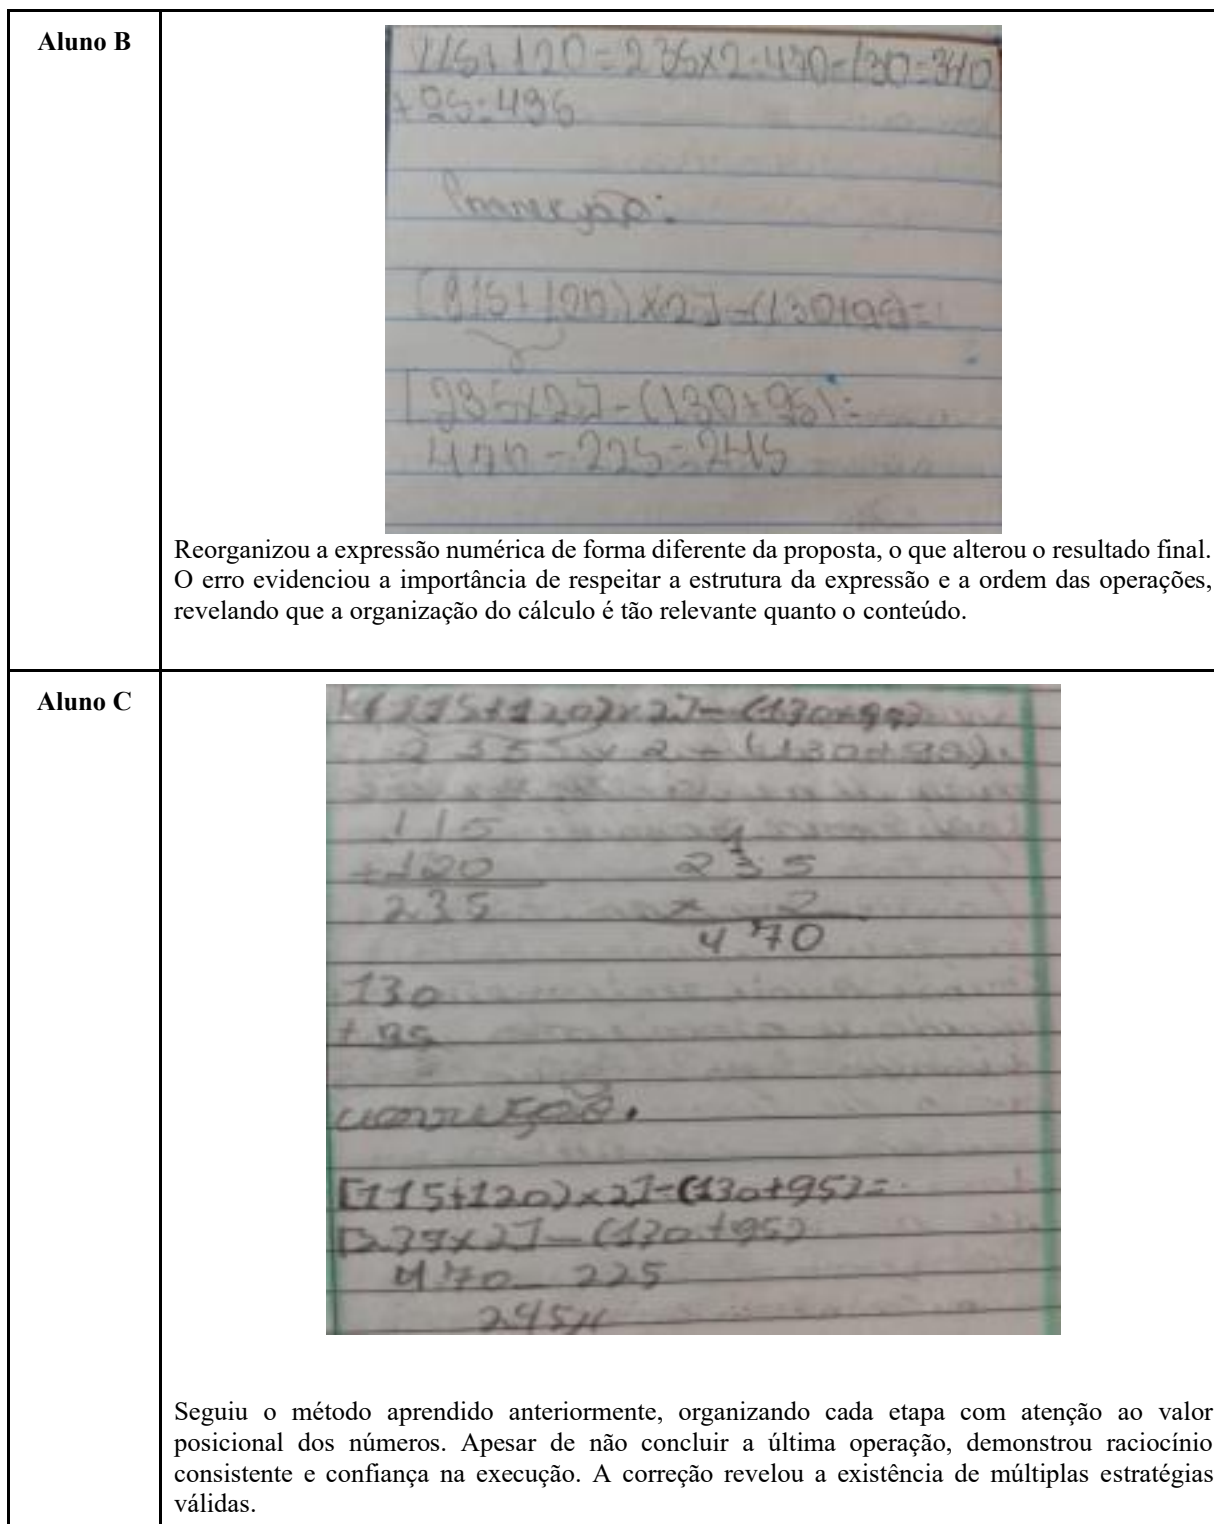 Aluno B
115+120=235x2=470-130=340
+95=435
Correção:
(115+120)x2]-(130+95)=
[235x2]-(130+95)=
470-225=245
Reorganizou a expressão numérica de forma diferente da proposta, o que alterou o resultado final.
O erro evidenciou a importância de respeitar a estrutura da expressão e a ordem das operações,
revelando que a organização do cálculo é tão relevante quanto o conteúdo.
Aluno C
(115+120)x2]-(130+95)
235 x 2 - (130+95)=
115
+120
235
1
235
x 2
470
130
+ 95
correção.
[115+120)x2]-(130+95)=
[235x2]-(130+95)
470-225
245//
Seguiu o método aprendido anteriormente, organizando cada etapa com atenção ao valor
posicional dos números. Apesar de não concluir a última operação, demonstrou raciocínio
consistente e confiança na execução. A correção revelou a existência de múltiplas estratégias
válidas.